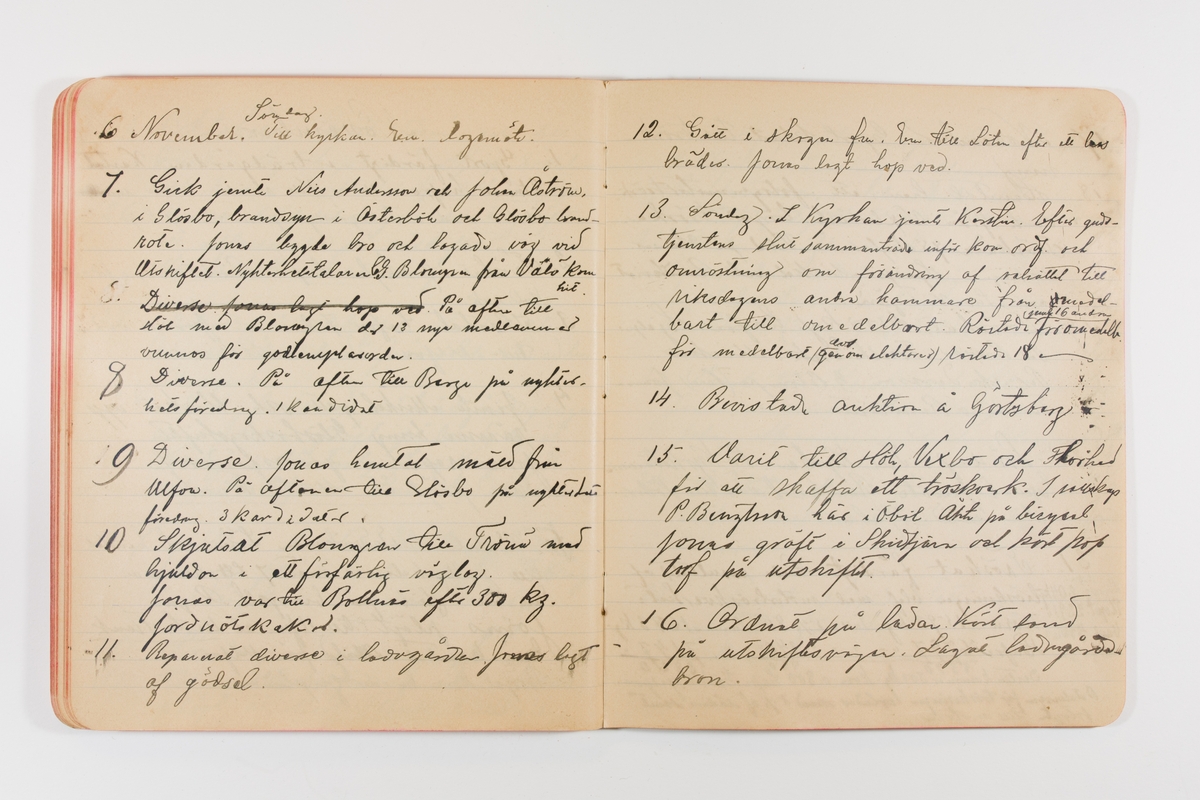 6 November. Söndag. Till kyrkan. Em. logemöt.
7. Gick jemte Nils Andersson och John Åström,
i Glösbo, brandsyn i Österböle och Glösbo brand-
rote. Jonas bygde bro och lagade väg vid
Utskiftet. Nykterhetstalaren G. Blomgren från kom
hit.
8. Diverse Jonas lagt hop ved. På aften till
Höle med Blomgren der 13 nye medlemmar
vunnos för godtemplarorden.
8 Diverse. På aften till Berge på nykter-
hetsföredrag. 1 kandidat
9 Diverse. Jonas hemtat mäld från
Ulfon. På aftonen till Glösbo på nykterhets
föredrag. 3 kandidater.
10 Skjutsat Blomgren till Trönö med
hjuldon i ett förfärlig väglag.
Jonas var till Bollnäs efter 300 kg.
jordnötskakor.
11. Reparerat diverse i ladugården. Jonas lagt
af gödsel.
12. Gått i skogen fm. Em till Löten efter ett lass
bräder. Jonas lagt hop ved.
13. Söndag. I Kyrkan jemte Kerstin. Efter guds-
tjenstens slut sammanträde inför kom. ordf. och
omröstning om förändring af valsättet till
riksdagens andra kammare från medel-
bart till omedelbart. Röstade jemte 16 andra för omedelb.
för medelbart (genom elektorer) röstade 18
14. Bevistade auktion å Görtsberg
15. Varit till Höle, Vexbo och
för att skaffa ett tröskverk. I sällskap
P. Bengtsson här i Öböl. Åkte på bicycel
Jonas gräft i Skidtjärn och kört hop
torf på utskiftet.
16. Ordnat på ladan. Kört sand
på utskiftsvägen. Lagat ladugårds
bron.